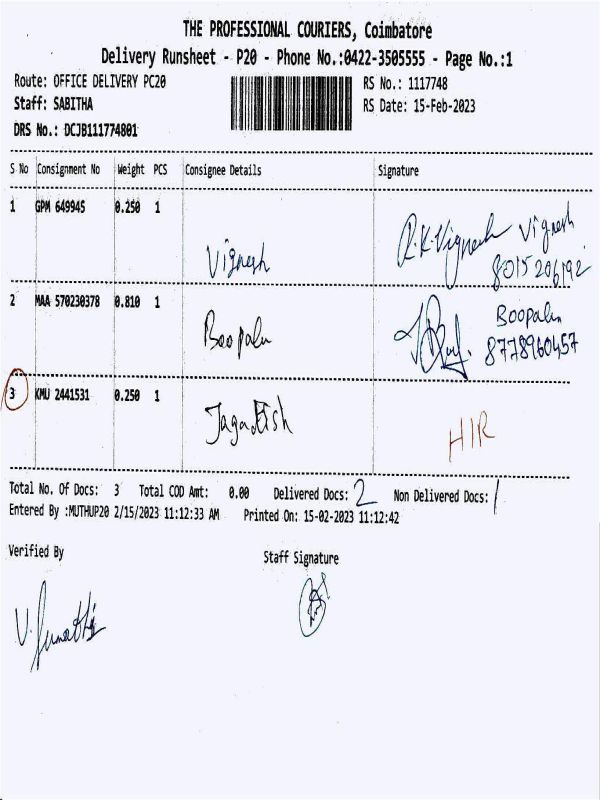 THE PROFESSIONAL COURIERS, Coimbatore
Delivery Runsheet - P20 - Phone No.:0422-3505555 - Page No.:1
Route: OFFICE DELIVERY PC20 RS No.: 1117748
Staff: SABITHA RS Date: 15-Feb-2023
DRS No.: DCJB111774801
S No Consignment No Weight PCS Consignee Details Signature
1 GPM 649945 0.250 1
Vignesh R.K.Vignesh Vignesh
8015206192
2 MAA 570230378 0.810 1 Boopalan
Boopalan 8778960457
3 KMU 2441531 0.250 1
Jagadish HIR
Total No. Of Docs: 3 Total COD Amt: 0.00 Delivered Docs: 2 Non Delivered Docs: 1
Entered By :MUTHUP20 2/15/2023 11:12:33 AM Printed On: 15-02-2023 11:12:42
Verified By Staff Signature
V. Sumathi